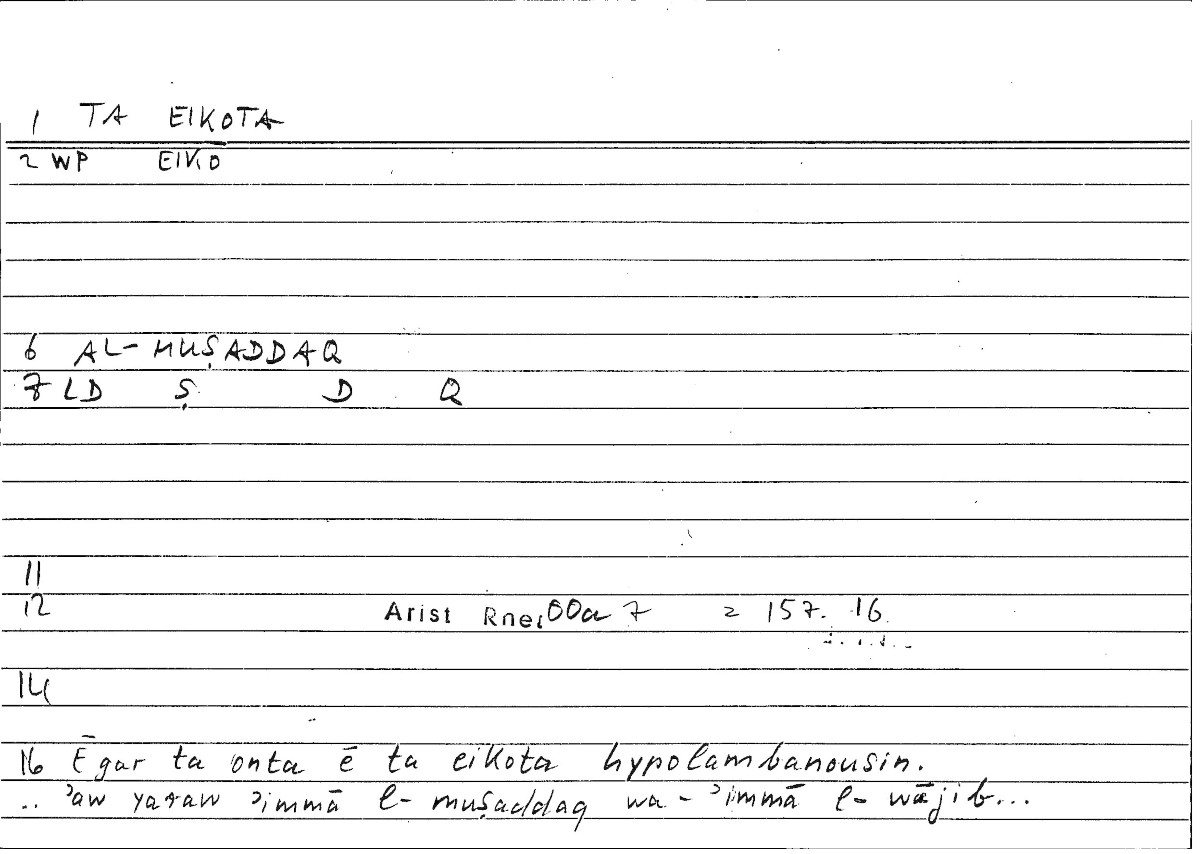 1 TA EIKOTA
2 WP EIKO
6 AL-MUṢADDAQ
7 LD Ṣ D Q
11
12 Arist Rhet 00a 7 = 157. 16
14
16 Ē gar ta onta ē ta eikota hypolambanousin.
.. ʾaw yaraw ʾimmā l-muṣaddaq wa-ʾimmā l-wājib...